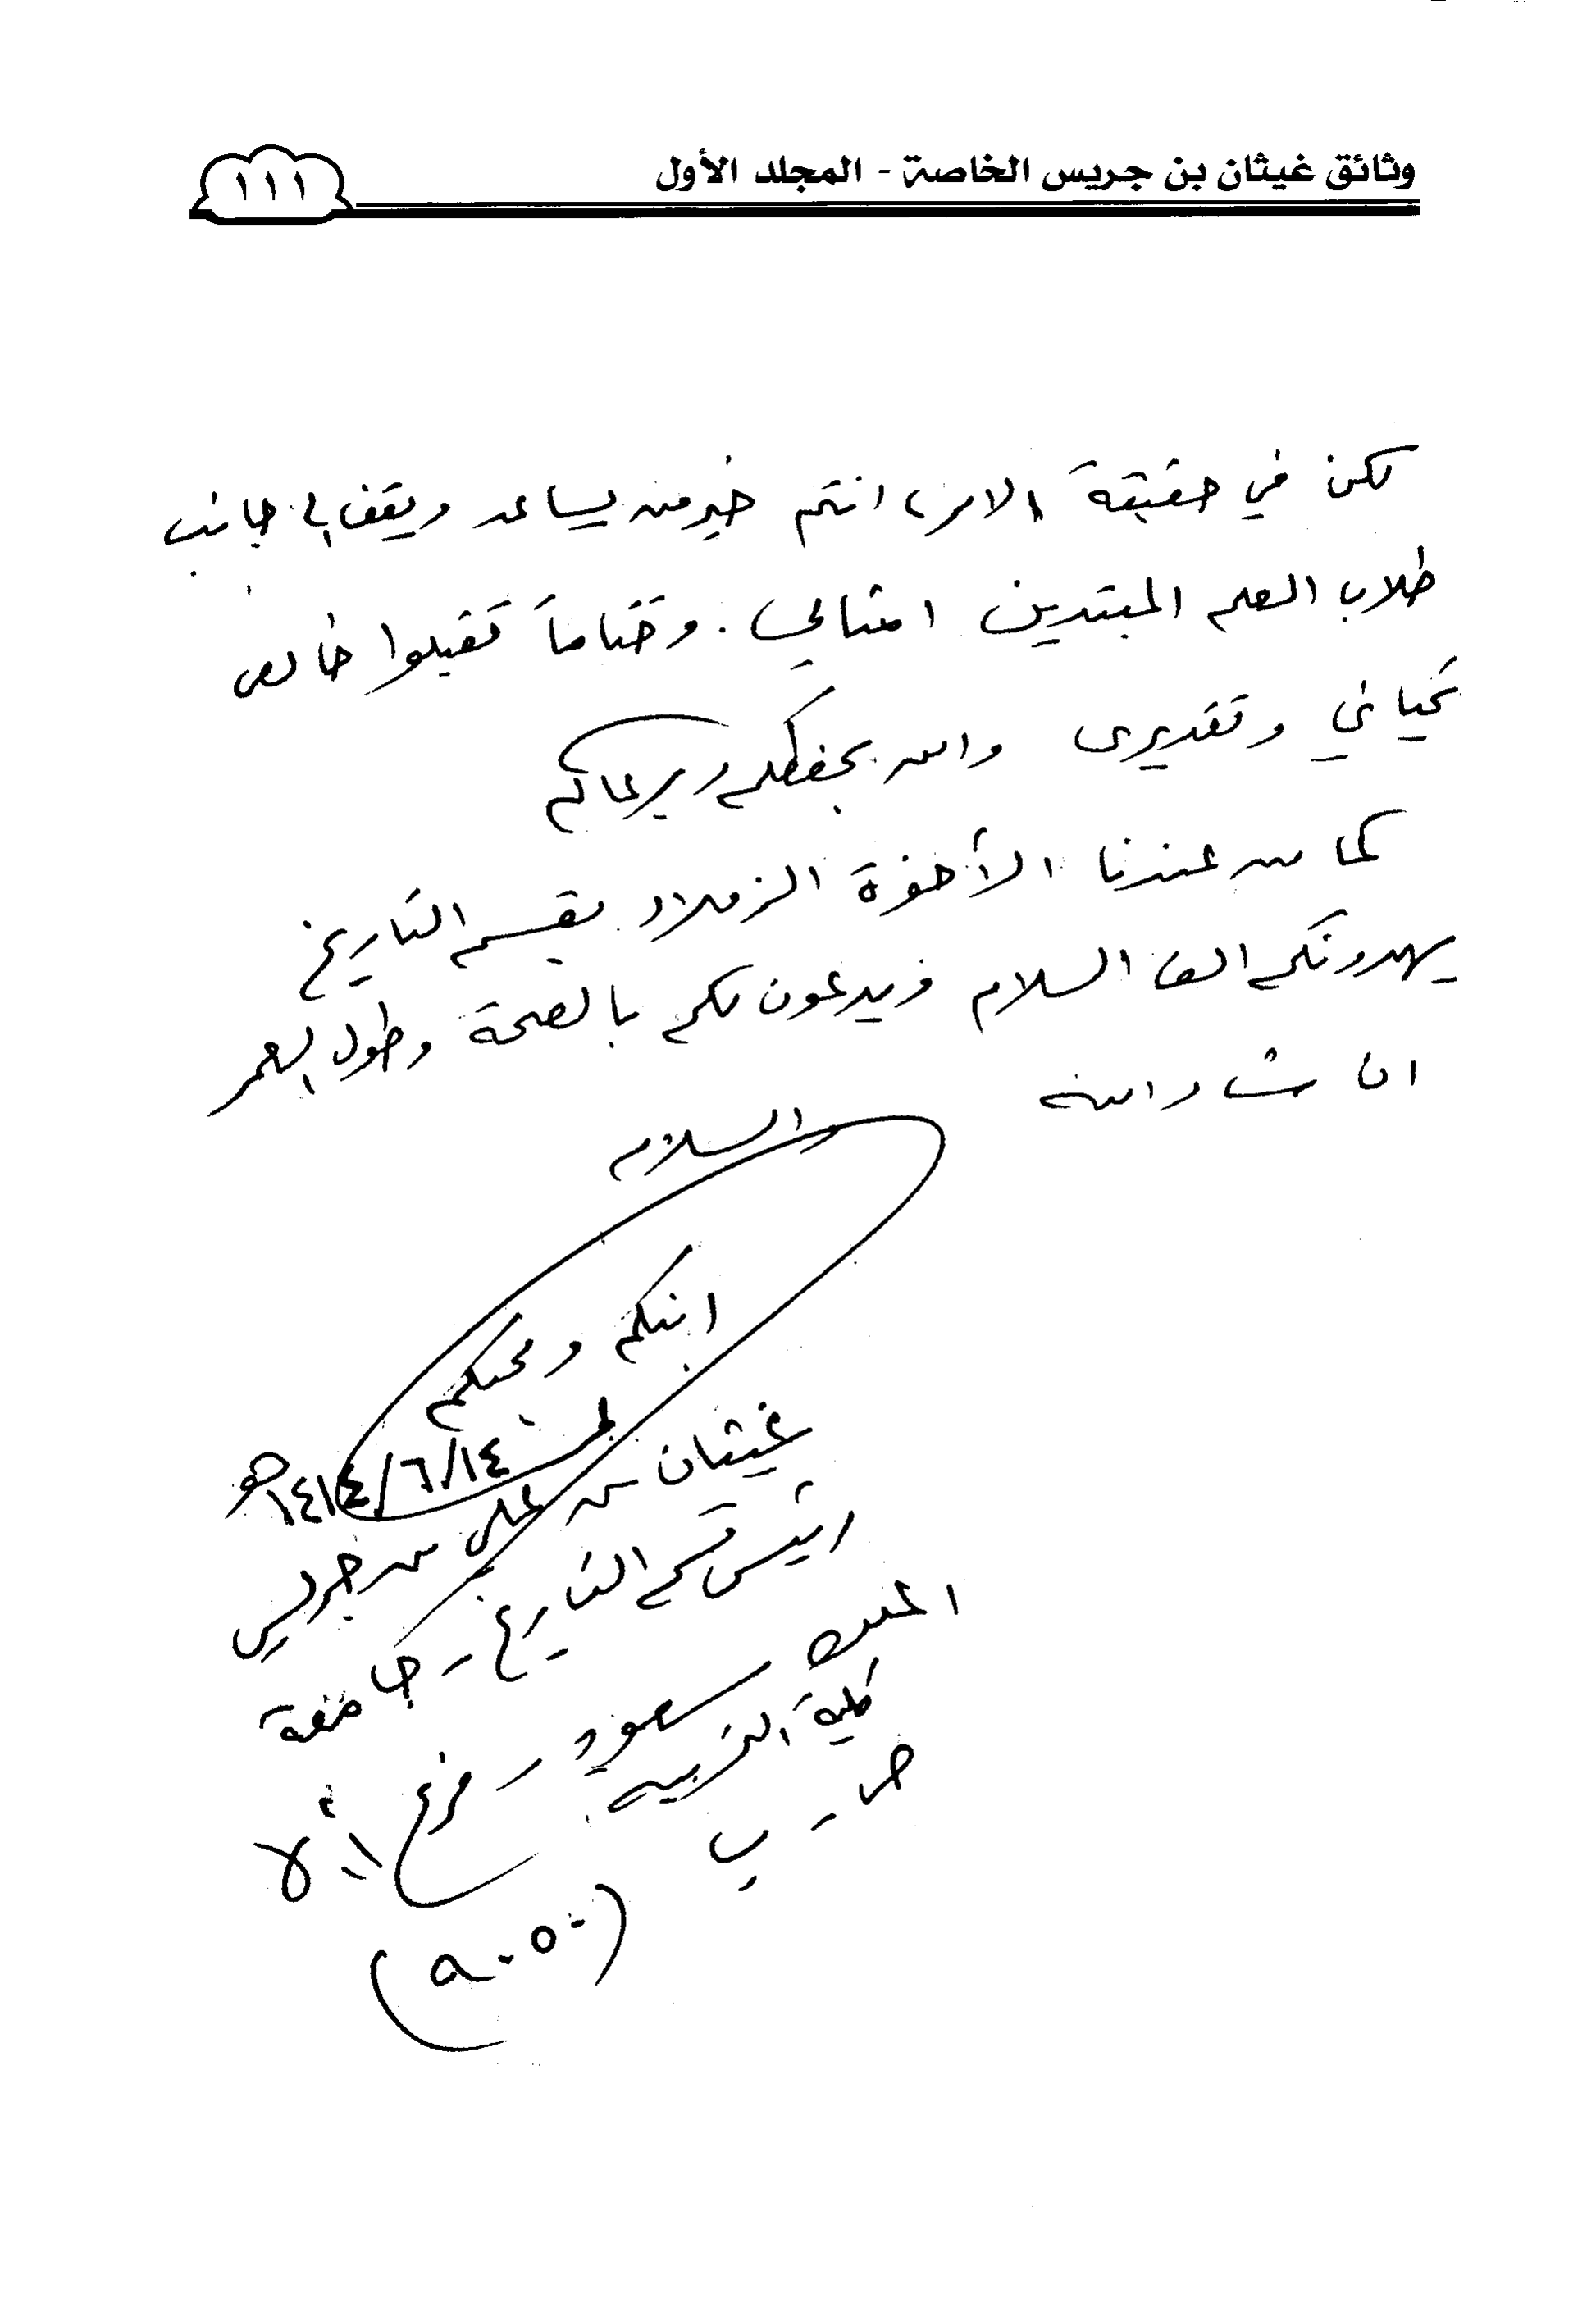 وثائق غيثان بن جريس الخاصة - المجلد الأول
١١١
لكن في حقيقة الامر، انتم خير من يساعد ويقف الى جانب
طلاب العلم المبتدين امثالي. وختاماً تقبلوا خالص
تحياتي وتقديرى والله يحفظكم ويرعاكم
كما من عندنا الأخوة الزملاء بقسم التاريخ
يهدونكم الف السلام ويدعون لكم بالصحة وطول العمر
ان شاء الله
والسلام
ابنكم ومحبكم
١٤١٤/٦/١٤هـ
غيثان بن علي بن جريس
رئيس قسم التاريخ - جامعة
الملك سعود - فرع أبها
كلية التربية
ص - ب
(٩٠٥٠)